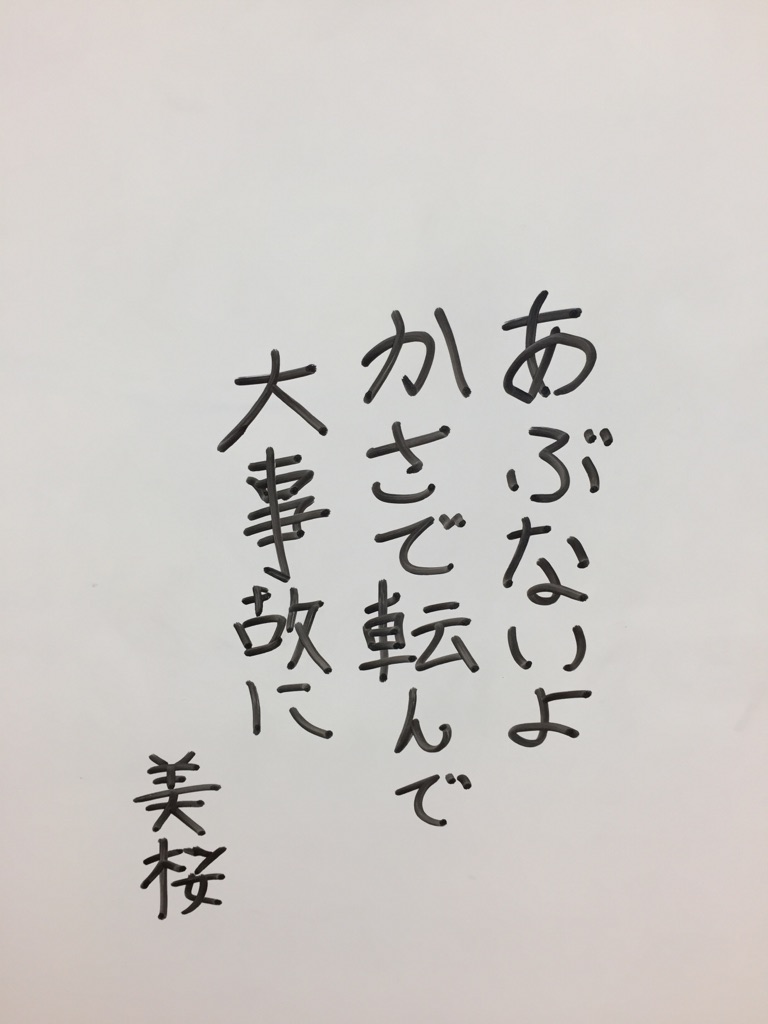 あぶないよ
かさで転んで
大事故に
美桜